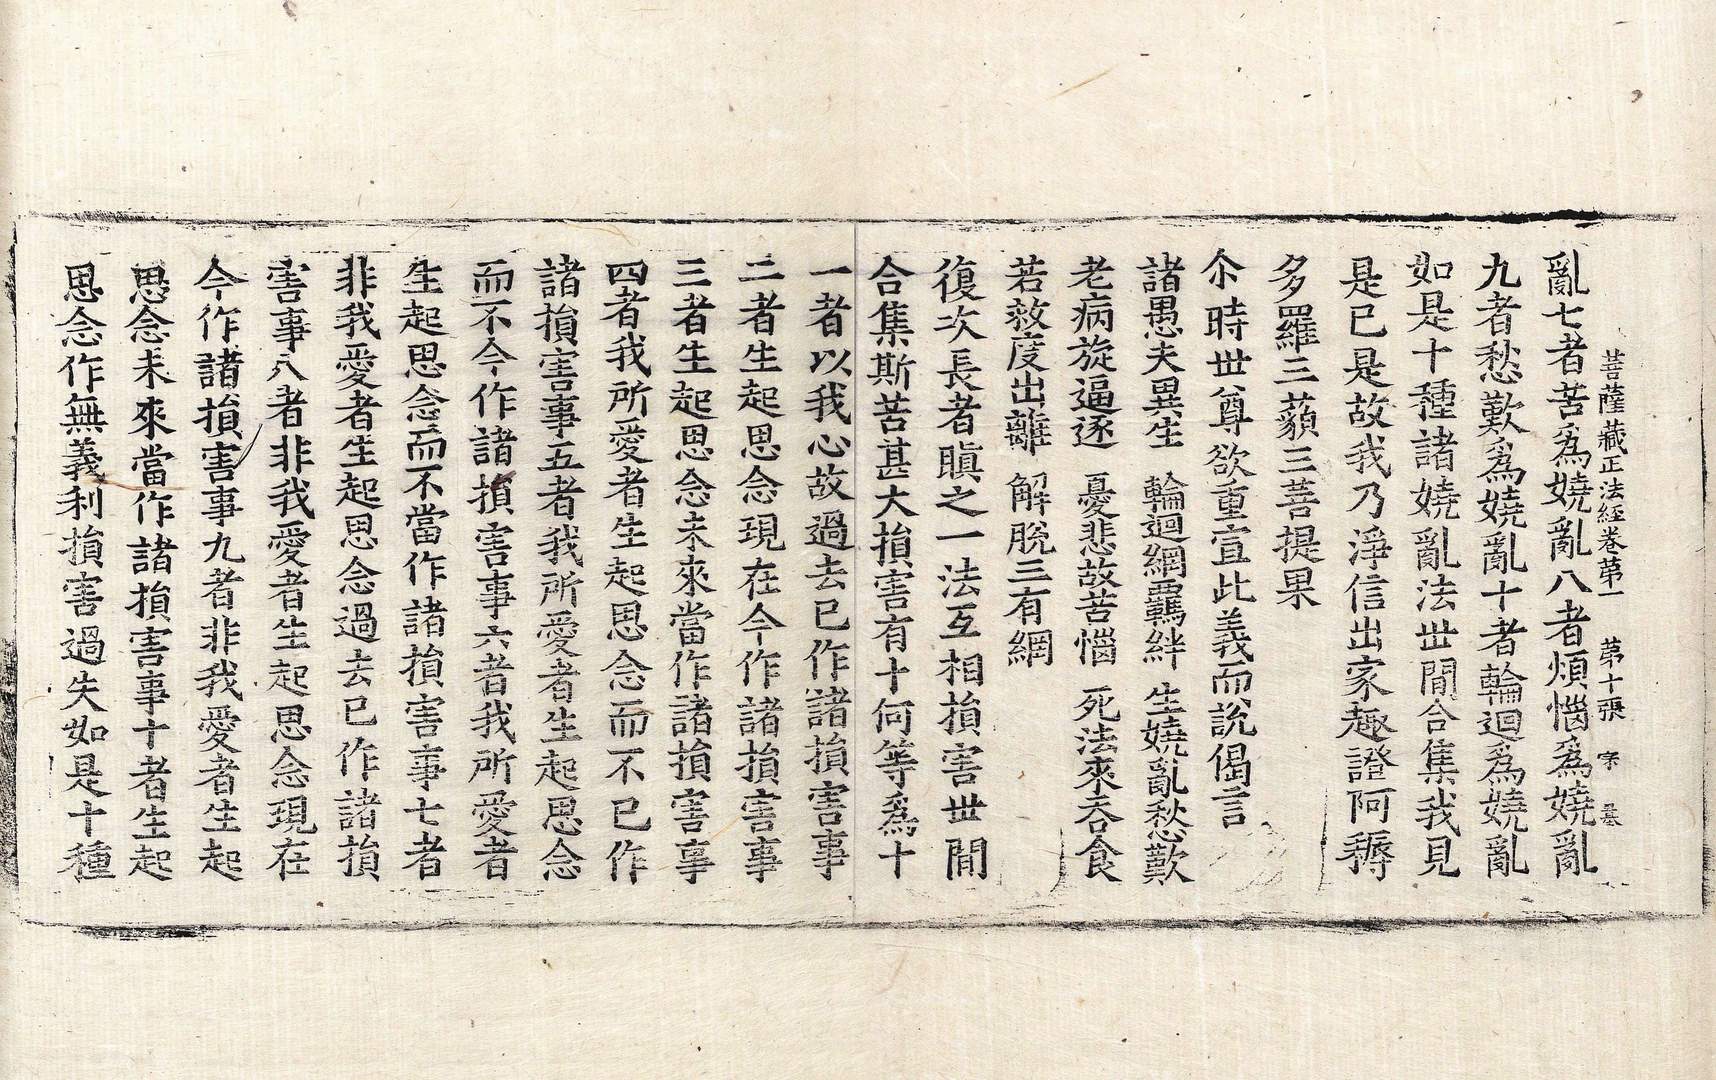 菩薩藏正法經卷第一　第十張　宗
亂七者苦爲嬈亂八者煩惱爲嬈亂
九者愁歎爲嬈亂十者輪迴爲嬈亂
如是十種諸嬈亂法丗閒合集我見
是已是故我乃淨信出家趣證阿耨
多羅三藐三菩提果
尒時丗尊欲重宣此義而說偈言
諸愚夫異生　輪迴網羈絆　生嬈亂愁歎
老病旋逼逐　憂悲故苦惱　死法來吞食
若救度出離　解脫三有網
復次長者瞋之一法互相損害丗閒
合集斯苦甚大損害有十何等爲十
一者以我心故過去已作諸損害事
二者生起思念現在今作諸損害事
三者生起思念未來當作諸損害事
四者我所愛者生起思念而不已作
諸損害事五者我所愛者生起思念
而不今作諸損害事六者我所愛者
生起思念而不當作諸損害事七者
非我愛者生起思念過去已作諸損
害事八者非我愛者生起思念現在
今作諸損害事九者非我愛者生起
思念未來當作諸損害事十者生起
思念作無義利損害過失如是十種